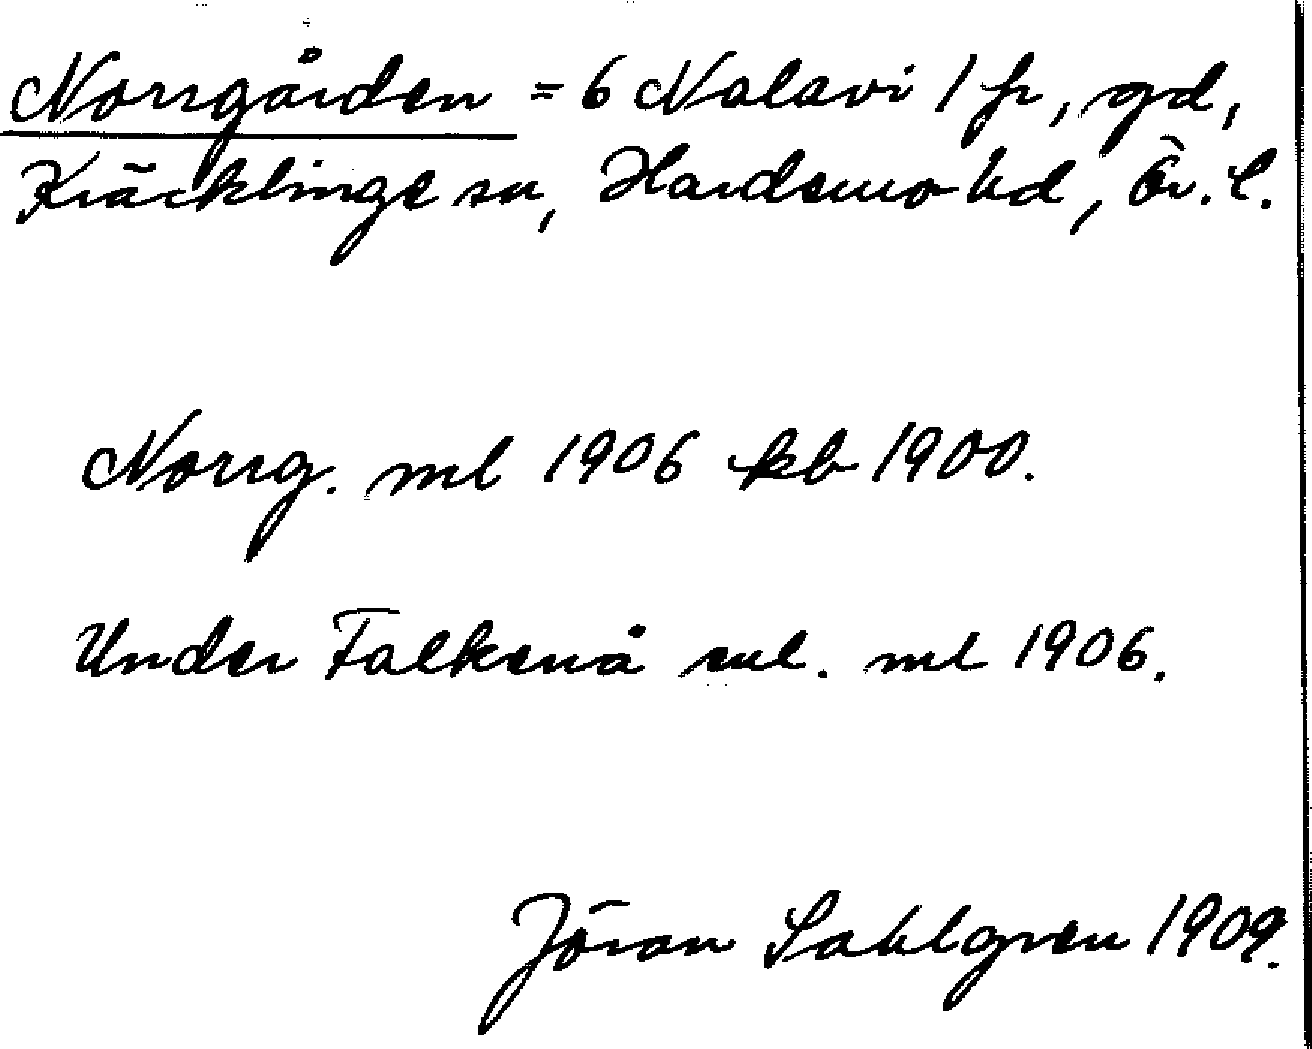 Norrgården = 6 Nalavi 1 fr, gd,
Kräcklinge sn, Hardemo hd, Ör. l.
Norrg. ml 1906 kb 1900.
Under Falkenå eul. ml 1906.
Jöran Sahlgren 1909.